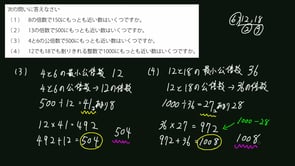 次の問いに答えなさい
(1) 8の倍数で150にもっとも近い数はいくつですか。
(2) 13の倍数で500にもっとも近い数はいくつですか。
(3) 4と6の公倍数で500にもっとも近い数はいくつですか。
(4) 12でも18でも割りきれる整数で1000にもっとも近い数はいくつですか。
⑥ 12, 18
② ③
(3)
4と6の最小公倍数 12
4と6の公倍数→12の倍数
500÷12=41あまり8
12×41=492
492+12=504
504
(4)
12と18の最小公倍数 36
12と18の公倍数→36の倍数
1000÷36=27あまり28
36×27=972
1000-28
972+36=1008
1008